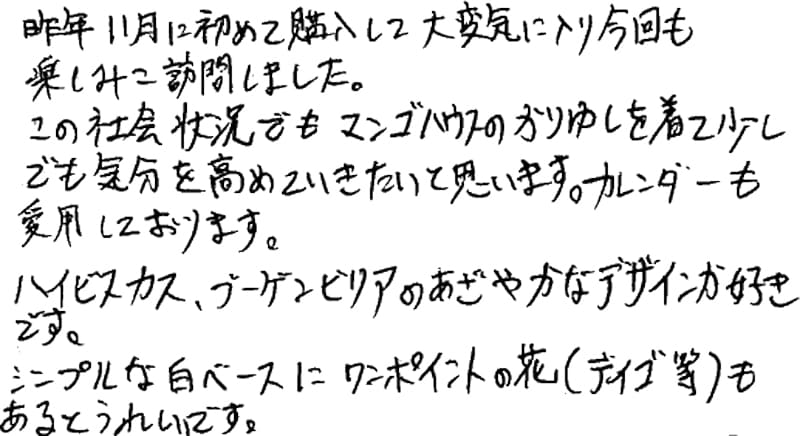 昨年11月に初めて購入して大変気に入り今回も
楽しみに訪問しました。
この社会状況でもマンゴハウスのかりゆしを着て少し
でも気分を高めていきたいと思います。カレンダーも
愛用しております。
ハイビスカス、ブーゲンビリアのあざやかなデザインが好き
です。
シンプルな白ベースにワンポイントの花(デイゴ等)も
あるとうれしいです。